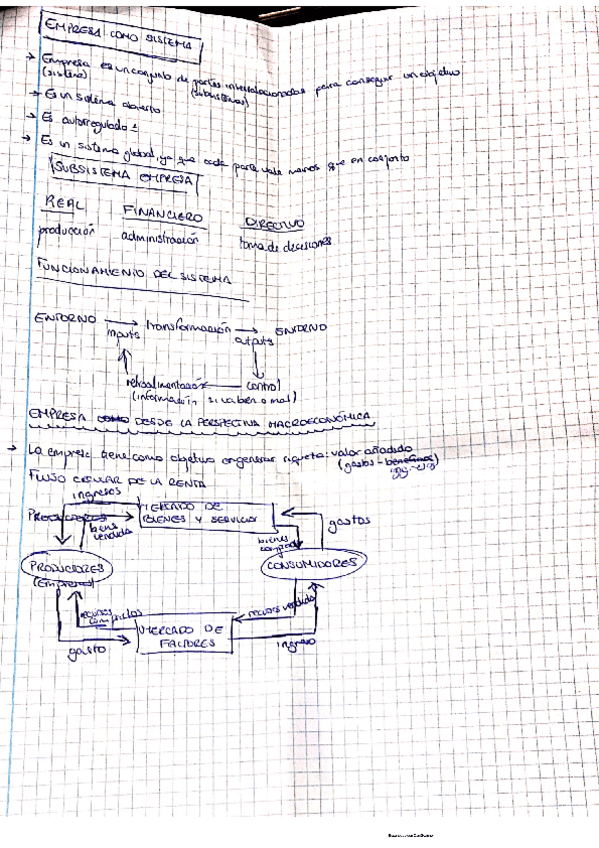 EMPRESA COMO SISTEMA
→ Empresa es un conjunto de partes interrelacionadas para conseguir un objetivo
(sistema) (subsistemas)
→ Es un sistema abierto
→ Es autorregulado ±
→ Es un sistema global, ya que cada parte vale menos que en conjunto
SUBSISTEMA EMPRESA
REAL FINANCIERO DIRECTIVO
producción administración toma de decisiones
FUNCIONAMIENTO DEL SISTEMA
ENTORNO → transformación → ENTORNO
inputs outputs
retroalimentación ← control
(información si va bien o mal)
EMPRESA COMO DESDE LA PERSPECTIVA MACROECONÓMICA
→ La empresa tiene como objetivo generar riqueza: valor añadido
(gastos - beneficios)
FLUJO CIRCULAR DE LA RENTA
ingresos
PRODUCTORES
MERCADO DE
BIENES Y SERVICIOS
gastos
bienes
vendidos
bienes
comprados
PRODUCTORES
(Empresas)
CONSUMIDORES
recursos
comprados
recursos vendidos
MERCADO DE
FACTORES
gasto
ingreso